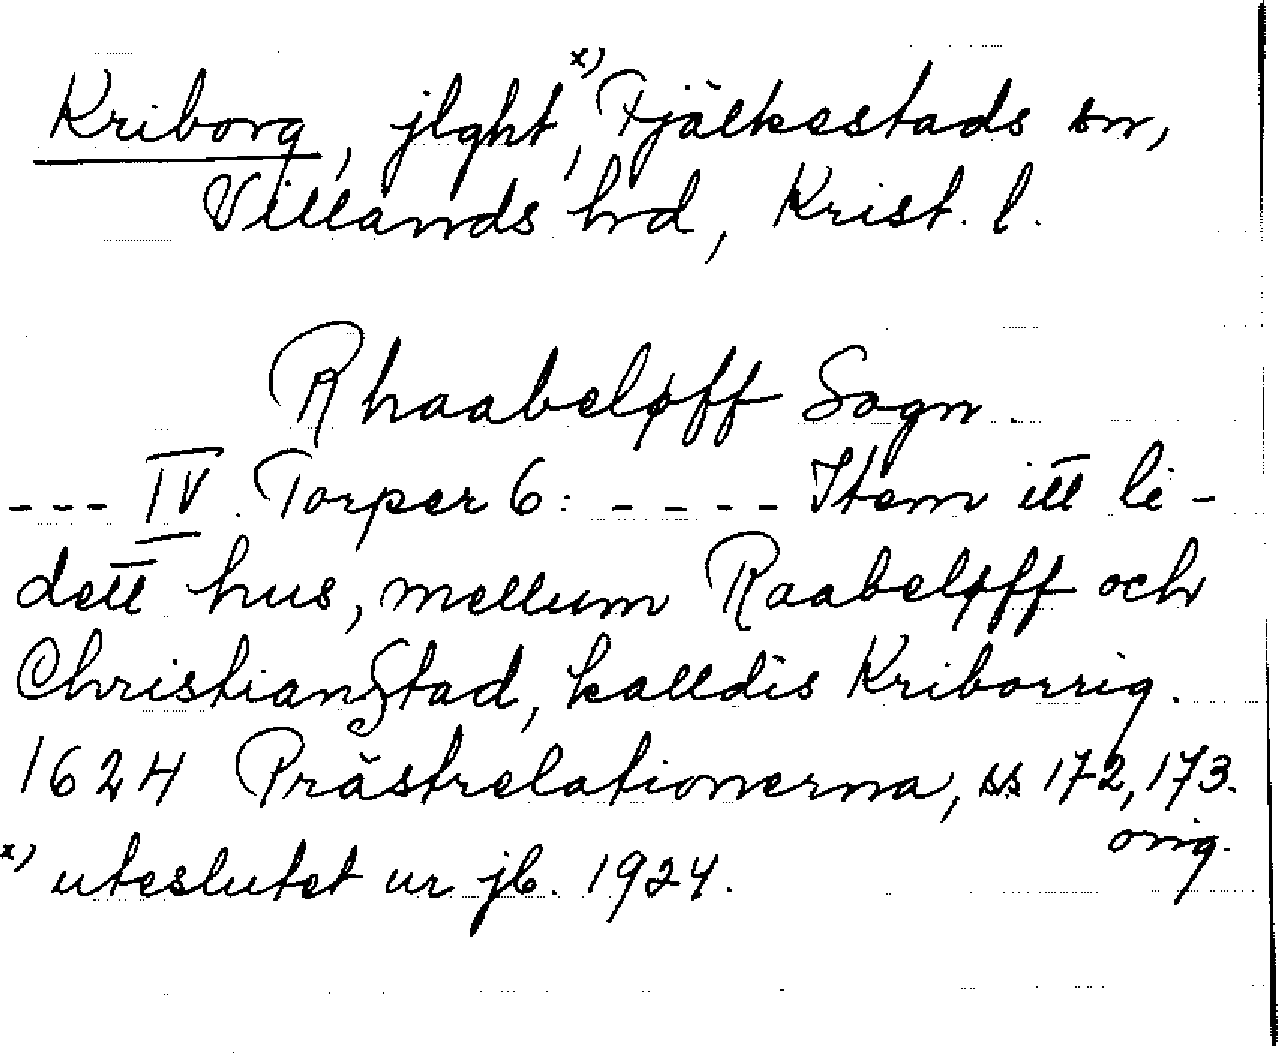 Kriborg, jlght,ˣ⁾ Fjälkestads sn,
Villands hd, Krist. l.
Rhaabeløff Sogn.
--- IV. Torper 6: ---- Item itt li-
dett hus, mellum Raabeløff och
Christianstad, kalldis Kriborrig.
1624 Prästrelationerna, ss 172, 173.
orig.
ˣ⁾ uteslutet ur jb. 1924.